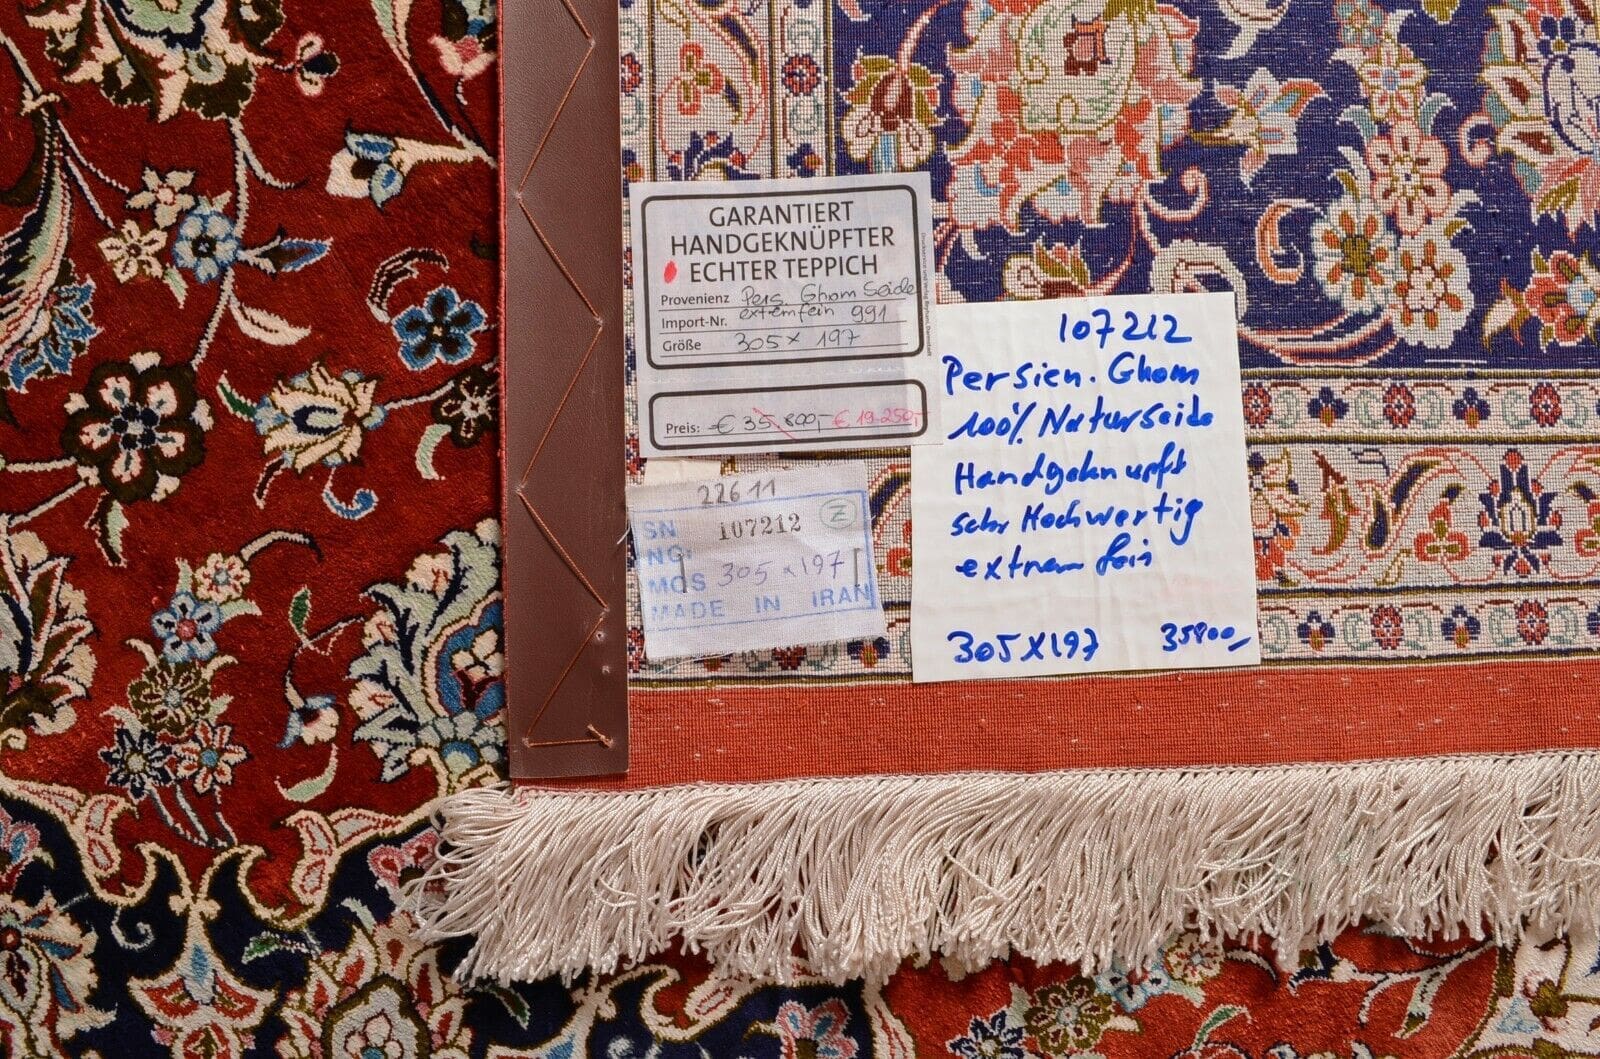 GARANTIERT
HANDGEKNÜPFTER
ECHTER TEPPICH
Provenienz Pers. Ghom Seide
Import-Nr. extremfein 991
Größe 305 x 197
Preis: € 35.800,- € 19.250,-
22611
SN 107212 Z
NG:
MOS 305 x 197
MADE IN IRAN
107212
Persien. Ghom
100% Naturseide
Handgeknüpft
sehr Hochwertig
extrem fein
305 x 197 35800,-
R